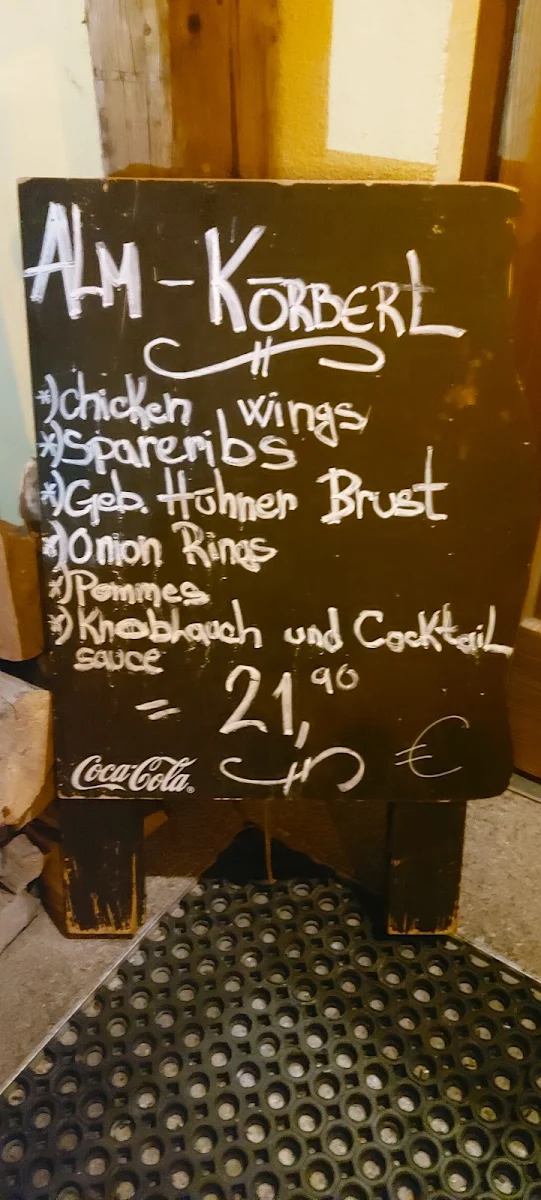 ALM - KÖRBERL
*) chicken wings
*) spareribs
*) Geb. Hühner Brust
*) Onion Rings
*) Pommes
*) Knoblauch und Cocktail
sauce
= 21,90
€
Coca-Cola